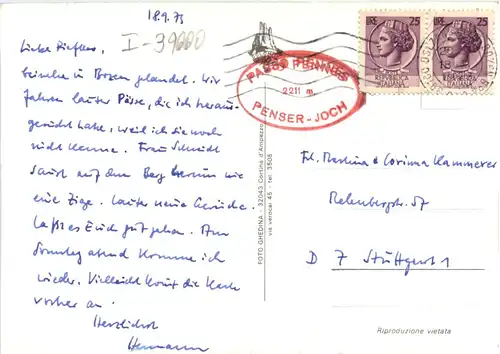 18.9.75
I-39000
Liebe
beinahe in Bozen gelandet. Wir
fahren lauter Pässe, die ich heraus-
gesucht habe, weil ich sie noch
nicht kenne. Frau Schmidt
saust auf den Berg herum wie
eine Zige. Lauter neue Gerüche.
Laßt es Euch gut gehen. Am
Sonntag abend komme ich
wieder. Vielleicht kommt die Karte
vorher an.
Herzlichst
Hermann
PASSO PENNES
2211 m
PENSER-JOCH
LIRE 25
REPUBBLICA
ITALIANA
LIRE 25
REPUBBLICA
ITALIANA
FOTO GHEDINA - 32043 Cortina d'Ampezzo
via verocai 45 - tel. 3508
Frl. Martina & Corinna Kammerer
Relenbergstr. 57
D 7 Stuttgart 1
Riproduzione vietata